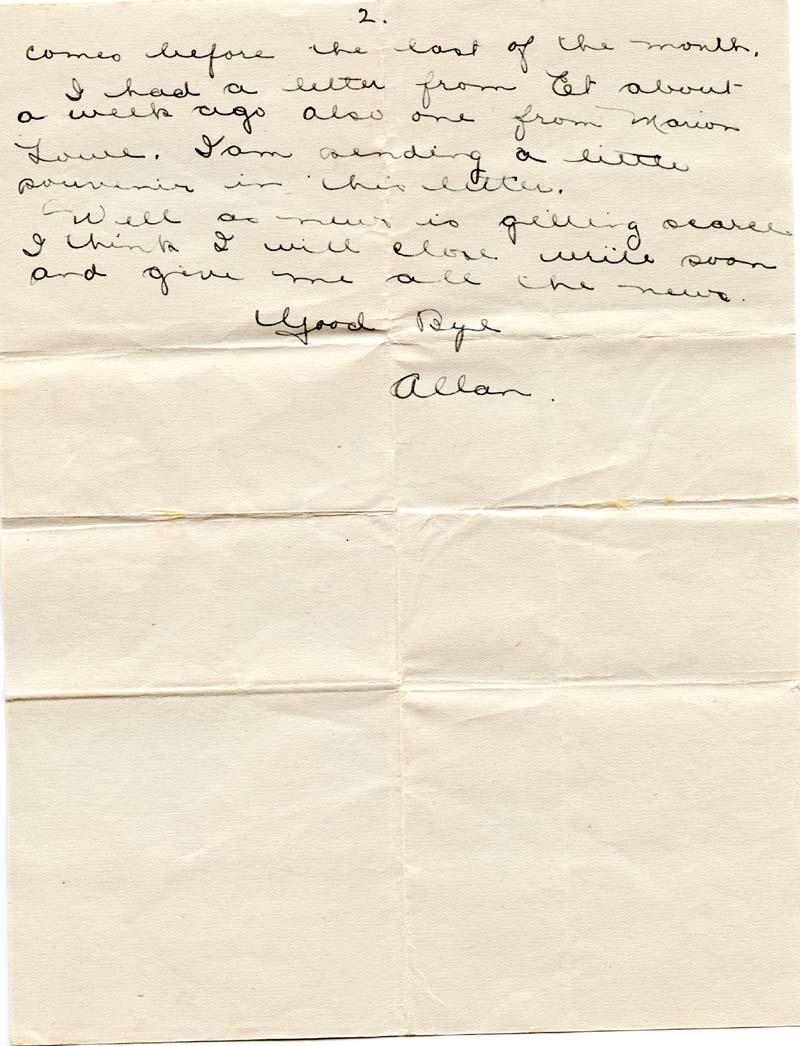 2.
comes before the last of the month.
I had a letter from Et about
a week ago also one from Marion
Lowe. I am sending a little
souvenir in this letter.
Well as news is getting scarce
I think I will close write soon
and give me all the news.
Good Bye
Allan.